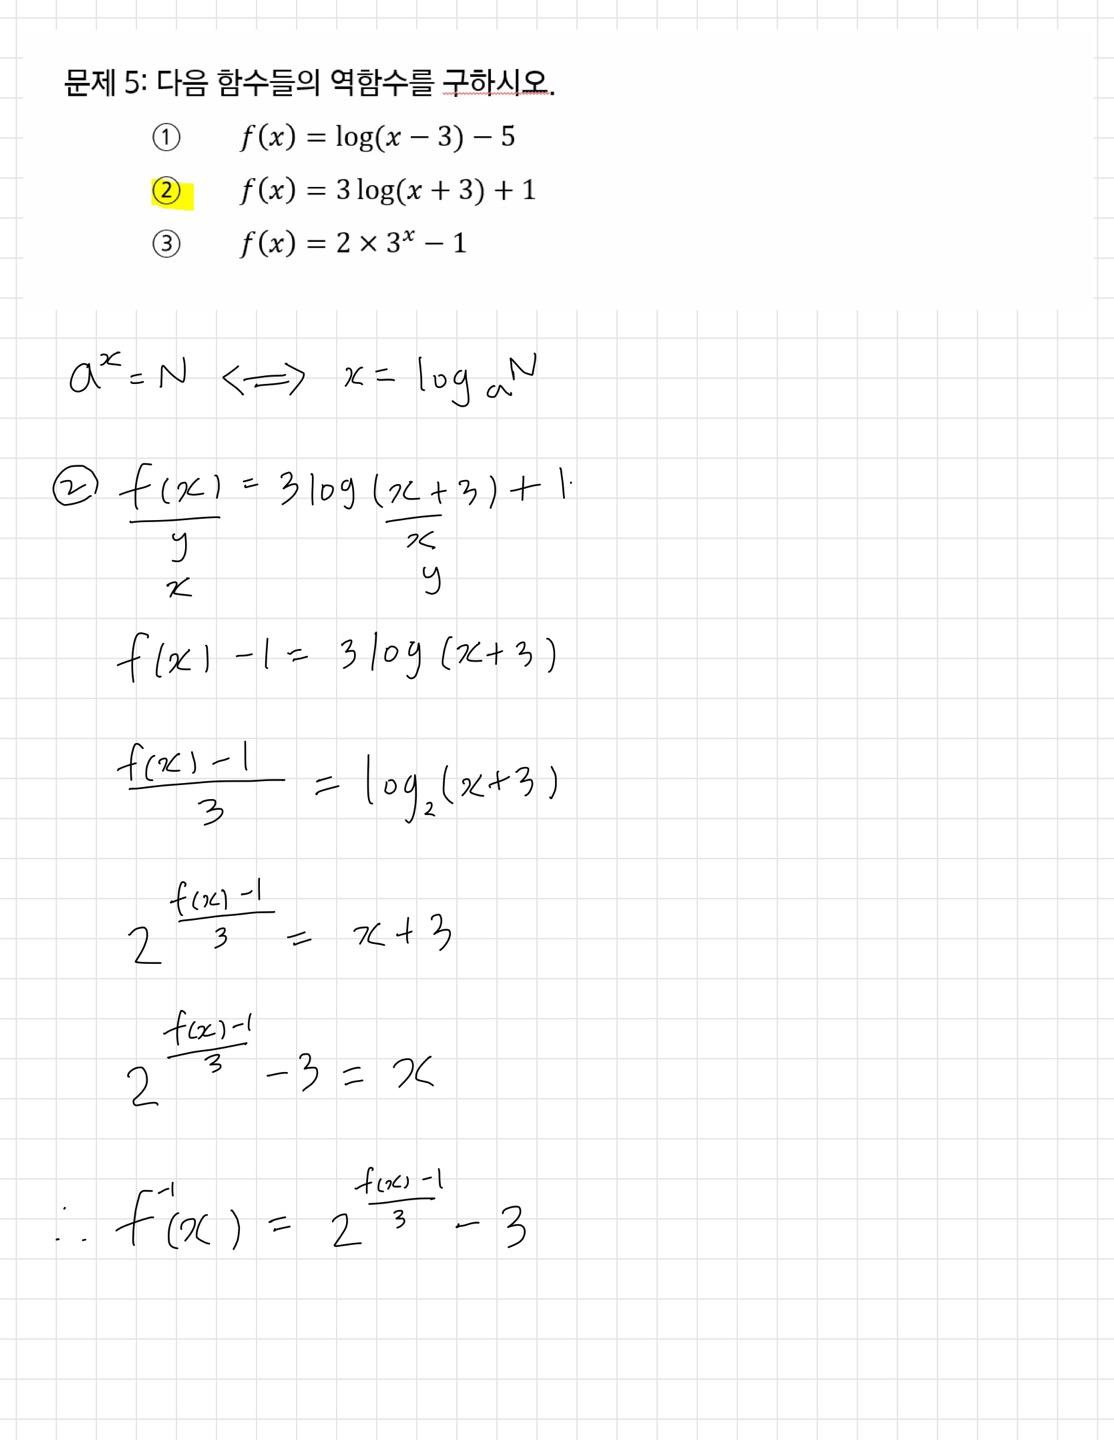 문제 5: 다음 함수들의 역함수를 구하시오.
① f(x) = log(x − 3) − 5
② f(x) = 3 log(x + 3) + 1
③ f(x) = 2 × 3ˣ − 1
aˣ = N <=> x = logₐN
② f(x) = 3log(x+3)+1
y x
x y
f(x) -1 = 3log(x+3)
(f(x)-1)/3 = log₂(x+3)
2^((f(x)-1)/3) = x+3
2^((f(x)-1)/3) -3 = x
∴ f⁻¹(x) = 2^((f(x)-1)/3) - 3